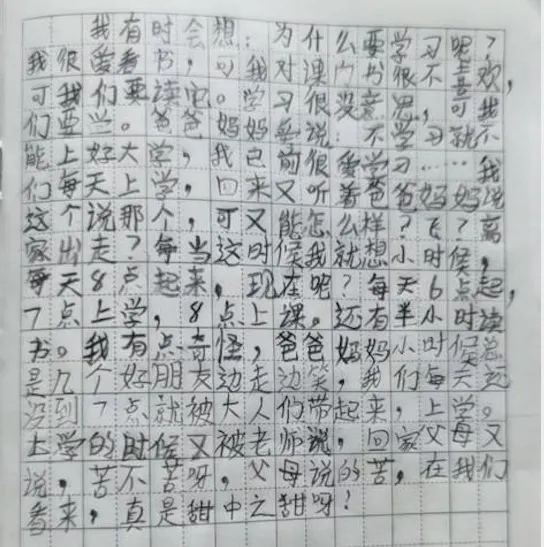 我有时会想：为什么要学习呢？
我很爱看书，可我对课门书很不喜欢，
可我们要读它。学习很没意思，可我
们要学。爸爸妈妈总说：不学习就不
能上好大学，我已前很爱学习……我
们每天上学，回来又听着爸爸妈妈说
这个说那个，可又能怎么样？飞？离
家出走？每当这时候我就想小时候，
每天8点起来，现在呢？每天6点起，
7点上学，8点上课。还有半小时读
书。我有点奇怪，爸爸妈妈小时候总
是几个好朋友边走边笑，我们每天还
没到7点就被大人们带起来，上学。
上学的时候又被老师说，回家父母又
说，苦不苦呀，父母说的苦，在我们
看来，真是甜中之甜呀！